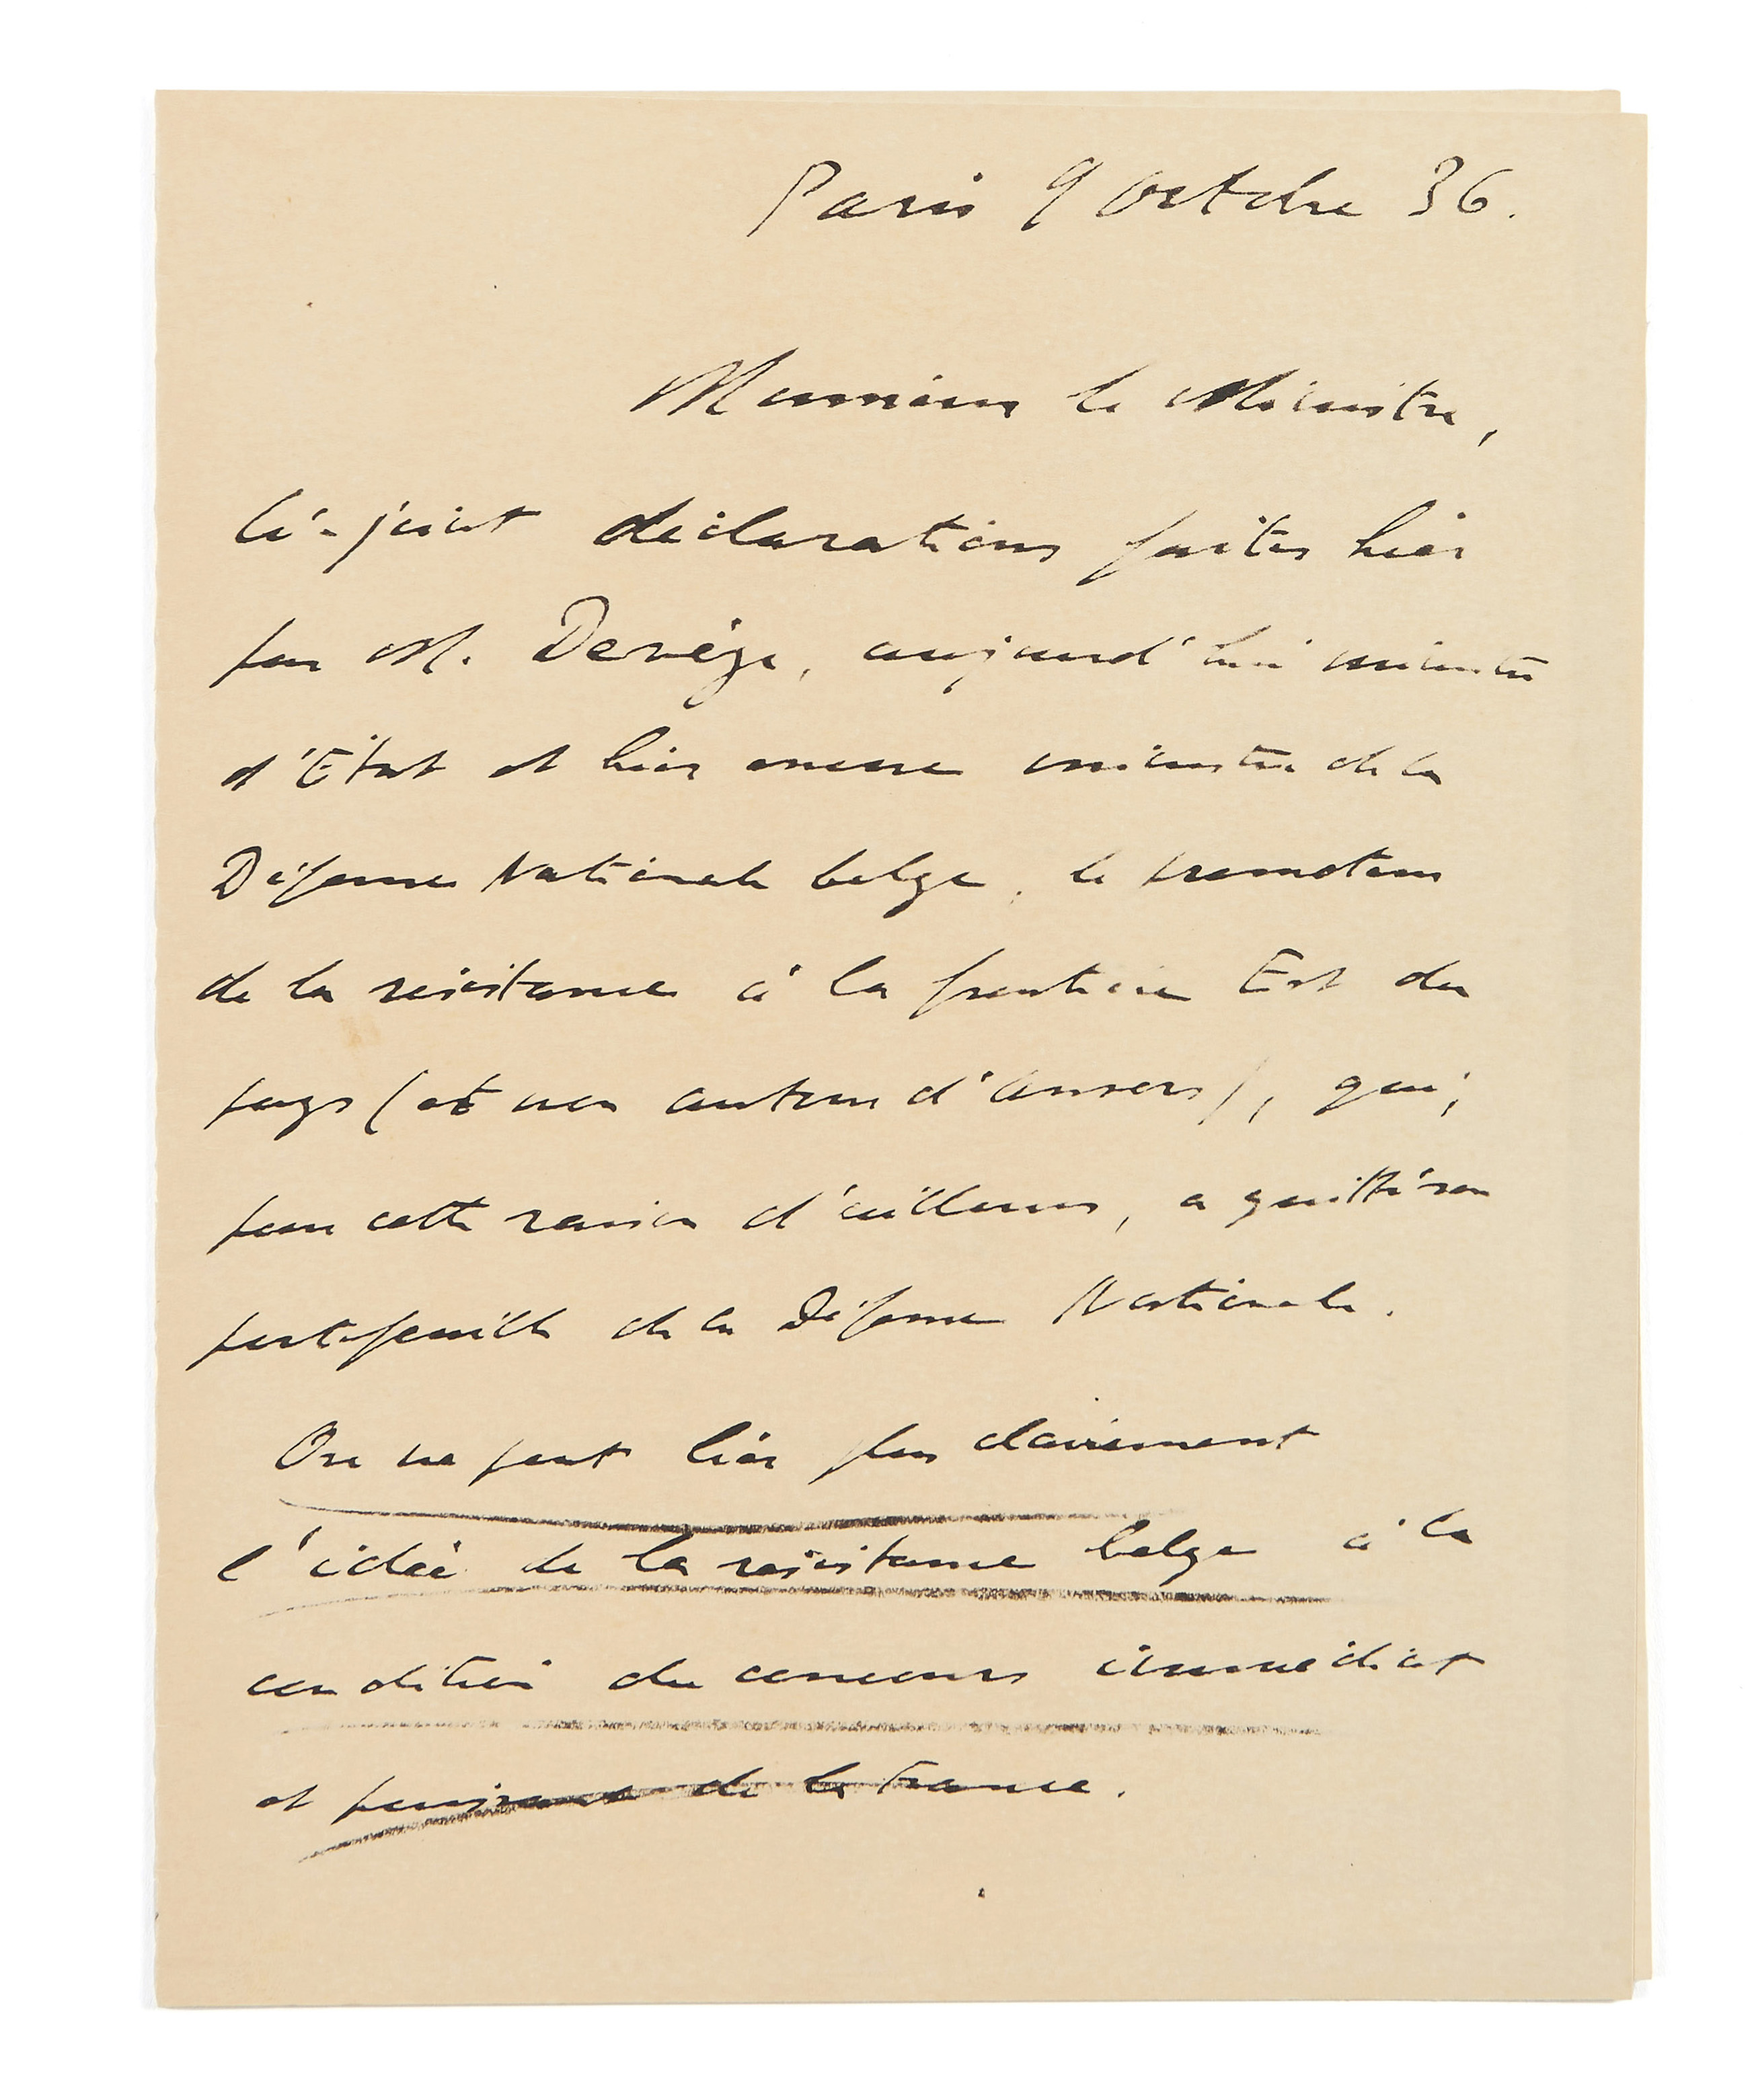 Paris 9 Octobre 36.
Monsieur le Ministre,
Ci-joint déclarations faites hier
par M. Devèze, aujourd'hui ministre
d'État et hier encore ministre de la
Défense Nationale belge, le promoteur
de la résistance à la frontière Est du
pays (et non autour d'Anvers), qui,
pour cette raison d'ailleurs, a quitté son
portefeuille de la Défense Nationale.
On ne peut lier plus clairement
l'idée de la résistance belge à la
condition du concours immédiat
et puissant de la France.